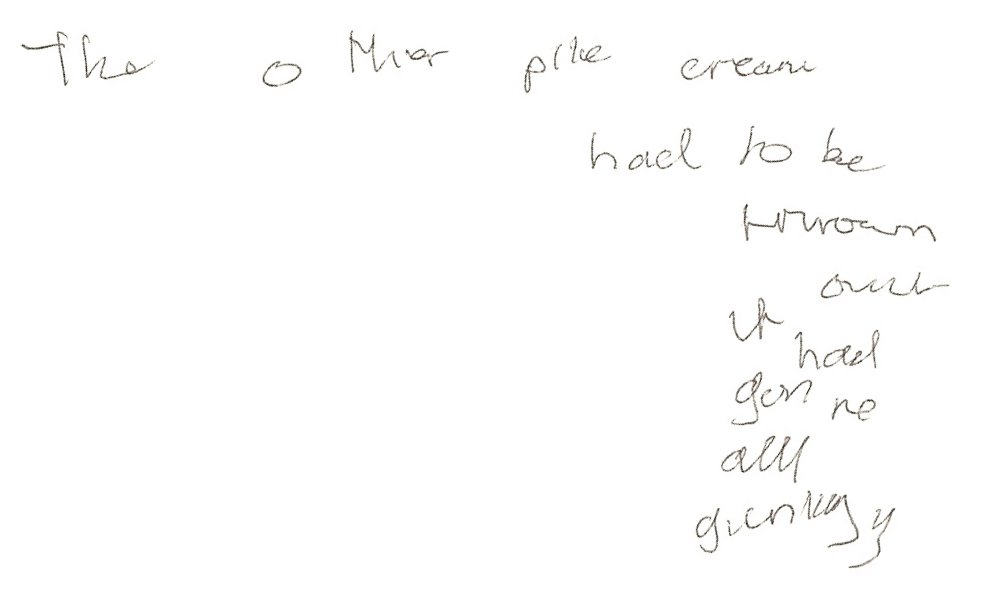 The other pile cream
had to be
thrown
out
it
had
gon ne
all
gunkgy